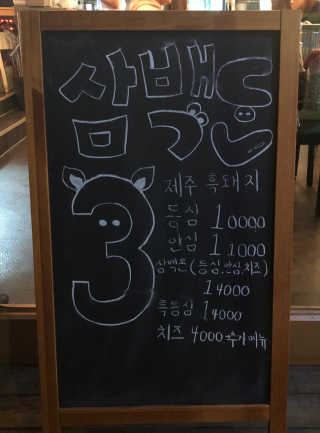 삼백돈
3
제주 흑돼지
등심 10000
안심 11000
삼백돈(등심.안심.치즈)
14000
특등심 14000
치즈 4000 추가메뉴